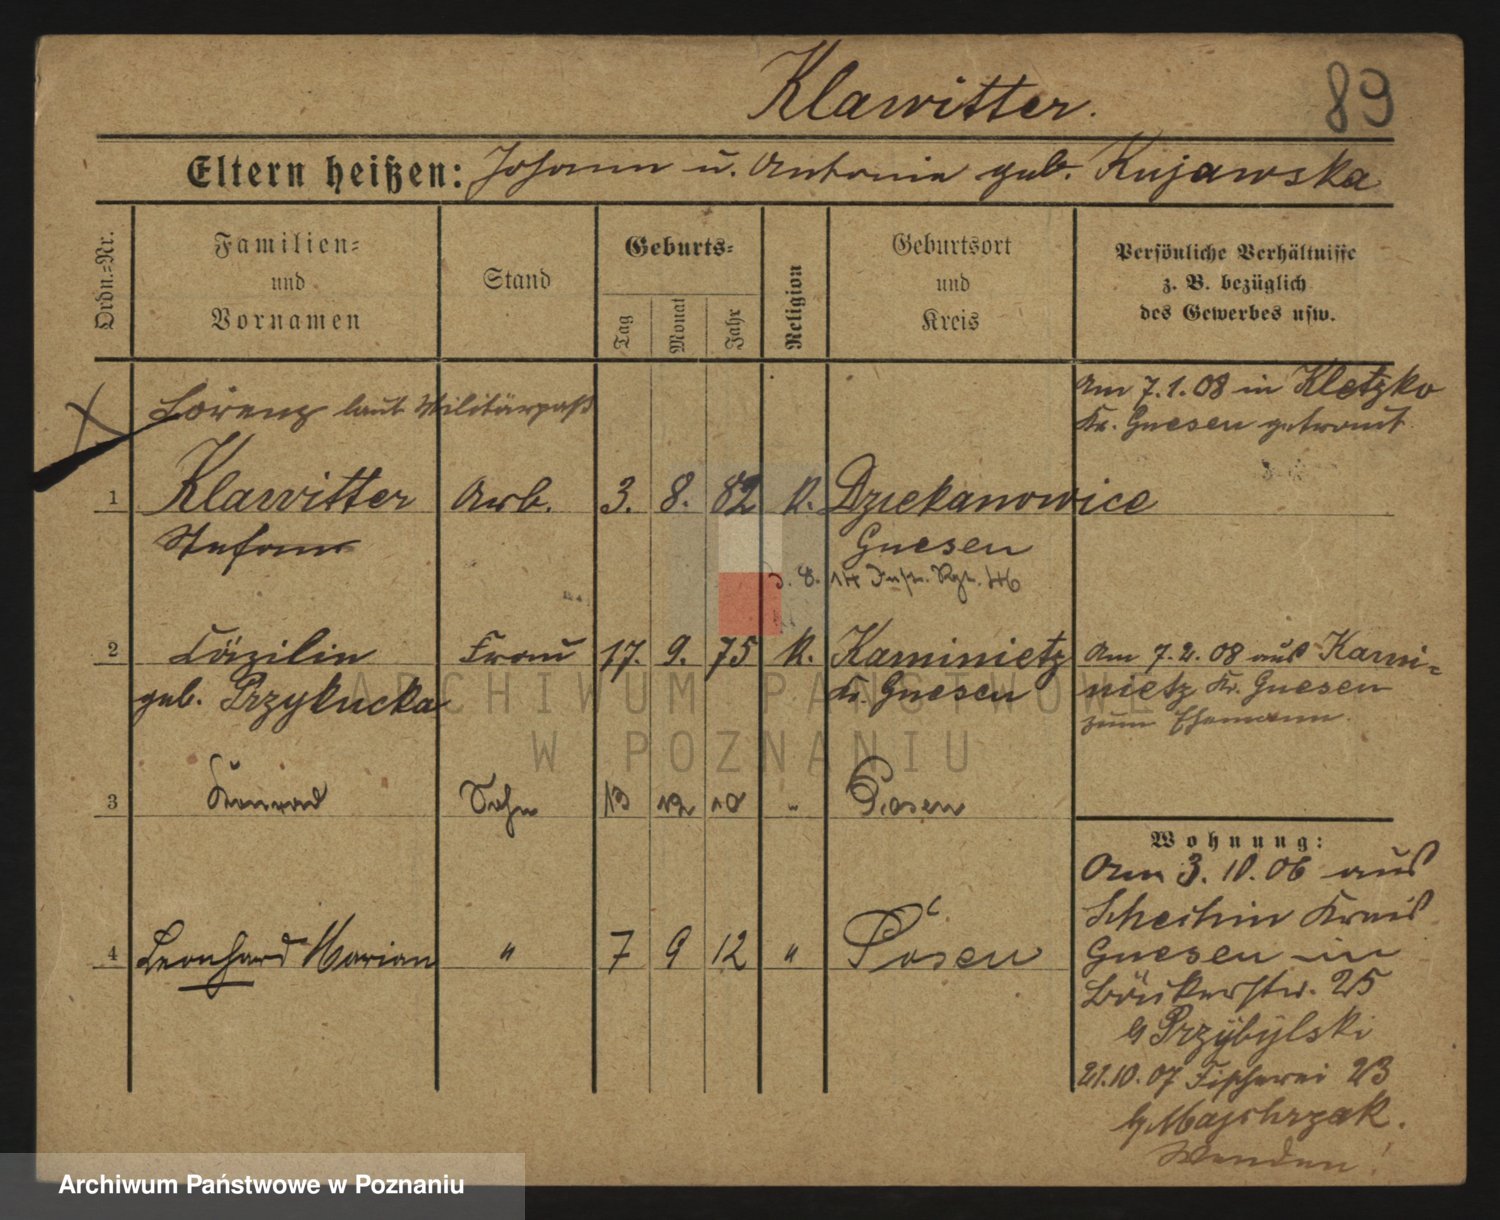 Klawitter.
89
Eltern heißen: Johann u. Antonie geb. Kujawska
Ordn.=Nr.
Familien=
und
Vornamen
Stand
Geburts=
Tag
Monat
Jahr
Religion
Geburtsort
und
Kreis
Persönliche Verhältnisse
z. B. bezüglich
des Gewerbes usw.
Lorenz laut Militärpaß
Am 7.1.08 in Kletzko
Kr. Gnesen getraut
1 Klawitter Arb. 3. 8. 82 K. Dziekanowice
Stefan
Gnesen
8. 14 Inf. Rgt. 46
2 Cäzilie Frau 17. 9. 75 K. Kaminietz
geb. Przykucka
Kr. Gnesen
Am 7.2.08 aus Kami=
nietz Kr. Gnesen
zum Ehemann.
ARCHIWUM PAŃSTWOWE
W POZNANIU
3 Konrad Sohn 13 12 10 " Posen
4 Leonhard Marian " 7 9 12 " Posen
Wohnung:
Am 3.10.06 aus
Kreis
Gnesen in
Bäckerstr. 25
b/ Przybylski
21.10.07 Fischerei 23
b/ Majchrzak.
Wenden!
Archiwum Państwowe w Poznaniu